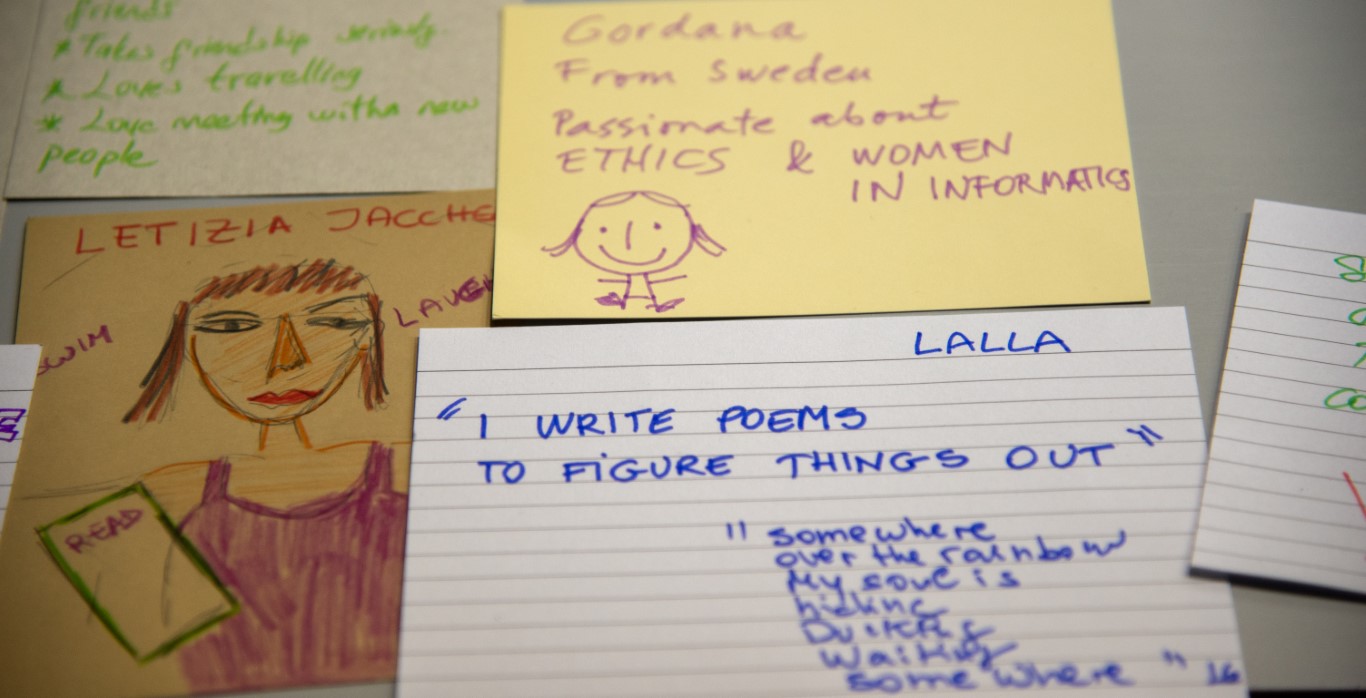 friends
* Takes friendship seriously
* Loves travelling
* Love meeting witha new
people
Gordana
From Sweden
Passionate about
ETHICS & WOMEN
IN INFORMATICS
LETIZIA JACCHE
SWIM
READ
LALLA
"I WRITE POEMS
TO FIGURE THINGS OUT"
"somewhere
over the rainbow
My soul is
Waiting
somewhere"